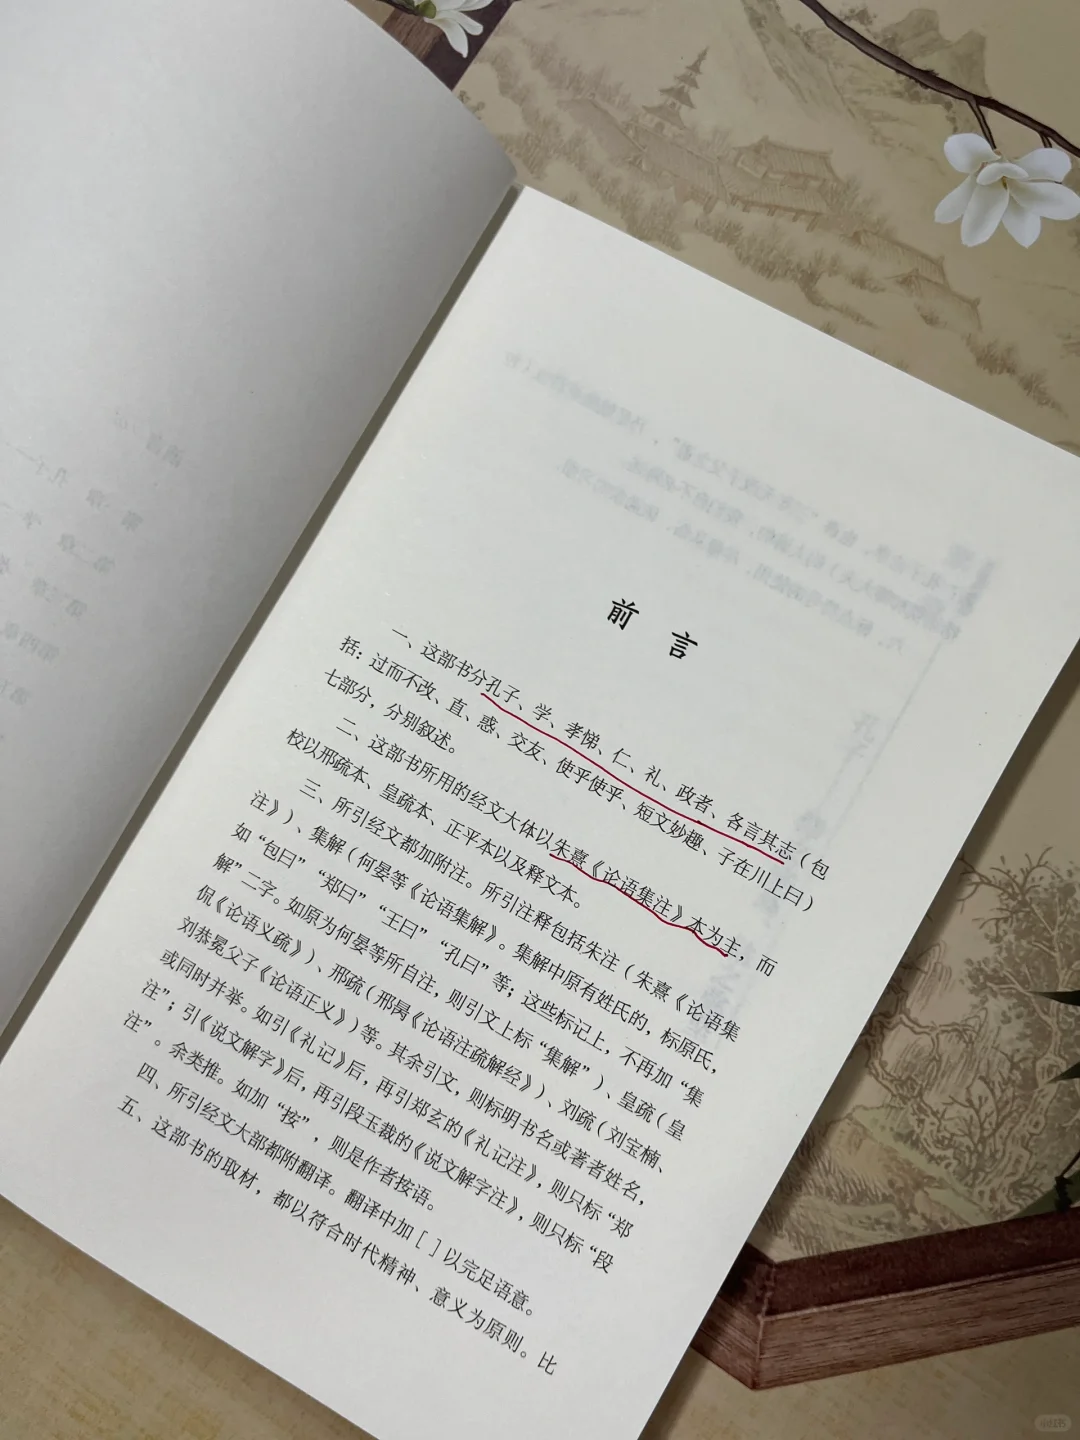 前言
一、这部书分孔子、学、孝悌、仁、礼、政者、各言其志（包
括：过而不改、直、惑、交友、使乎使乎、短文妙趣、子在川上曰）
七部分，分别叙述。
二、这部书所用的经文大体以朱熹《论语集注》本为主，而
校以邢疏本、皇疏本、正平本以及释文本。
三、所引经文都加附注。所引注释包括朱注（朱熹《论语集
注》）、集解（何晏等《论语集解》。集解中原有姓氏的，标原氏，
如“包曰”“郑曰”“王曰”“孔曰”等；这些标记上，不再加“集
解”二字。如原为何晏等所自注，则引文上标“集解”）、皇疏（皇
侃《论语义疏》）、邢疏（邢昺《论语注疏解经》）、刘疏（刘宝楠、
刘恭冕父子《论语正义》）等。其余引文，则标明书名或著者姓名，
或同时并举。如引《礼记》后，再引郑玄的《礼记注》，则只标“郑
注”；引《说文解字》后，再引段玉裁的《说文解字注》，则只标“段
注”。余类推。如加“按”，则是作者按语。
四、所引经文大部都附翻译。翻译中加［ ］以完足语意。
五、这部书的取材，都以符合时代精神、意义为原则。比
小红书